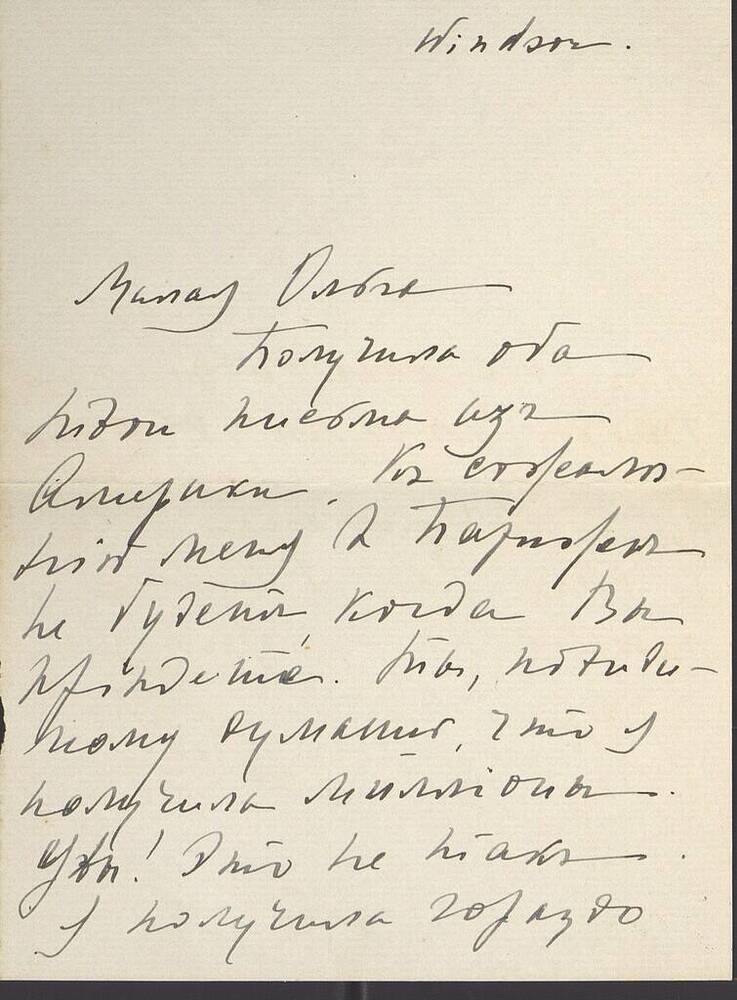 Windsor.
Милая Ольга
Получила оба
твои письма изъ
Америки. Къ сожалѣ-
нію меня въ Парижѣ
не будетъ, когда Вы
пріѣдете. Ты, повиди-
мому думаешь, что я
получила милліоны.
Увы! Это не такъ.
Я получила гораздо